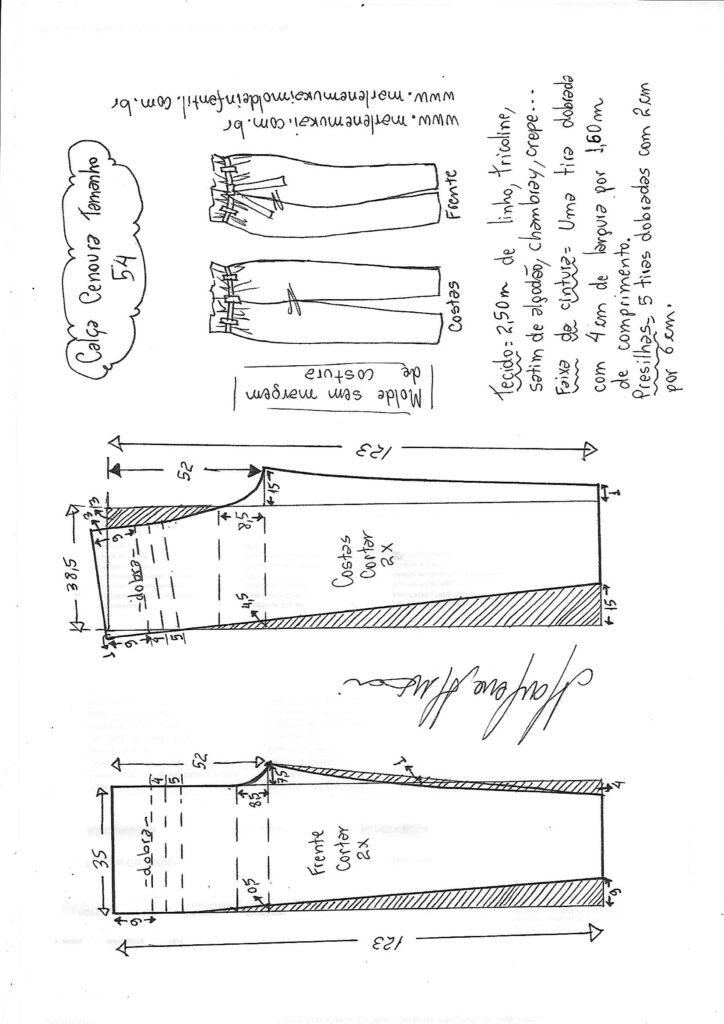 Calça Cenoura Tamanho
54
www.marlenemukai.com.br
www.marlenemukaimoldeinfantil.com.br
Frente
Costas
Molde sem margem
de costura
Tecido= 2,50m de linho, tricoline,
satim de algodão, chambray, crepe...
Faixa da cintura= Uma tira dobrada
com 4cm de largura por 1,60m
de comprimento.
Presilhas= 5 tiras dobradas com 2cm
por 6cm.
123
52
15
1
3
3
38,5
6
-dobra-
8,5
Costas
Cortar
2x
4,5
1
6
4
5
15
Marlene Mukai
52
7,5
1
4
35
4
5
8,5
-dobra-
Frente
Cortar
2x
0,5
6
9
123